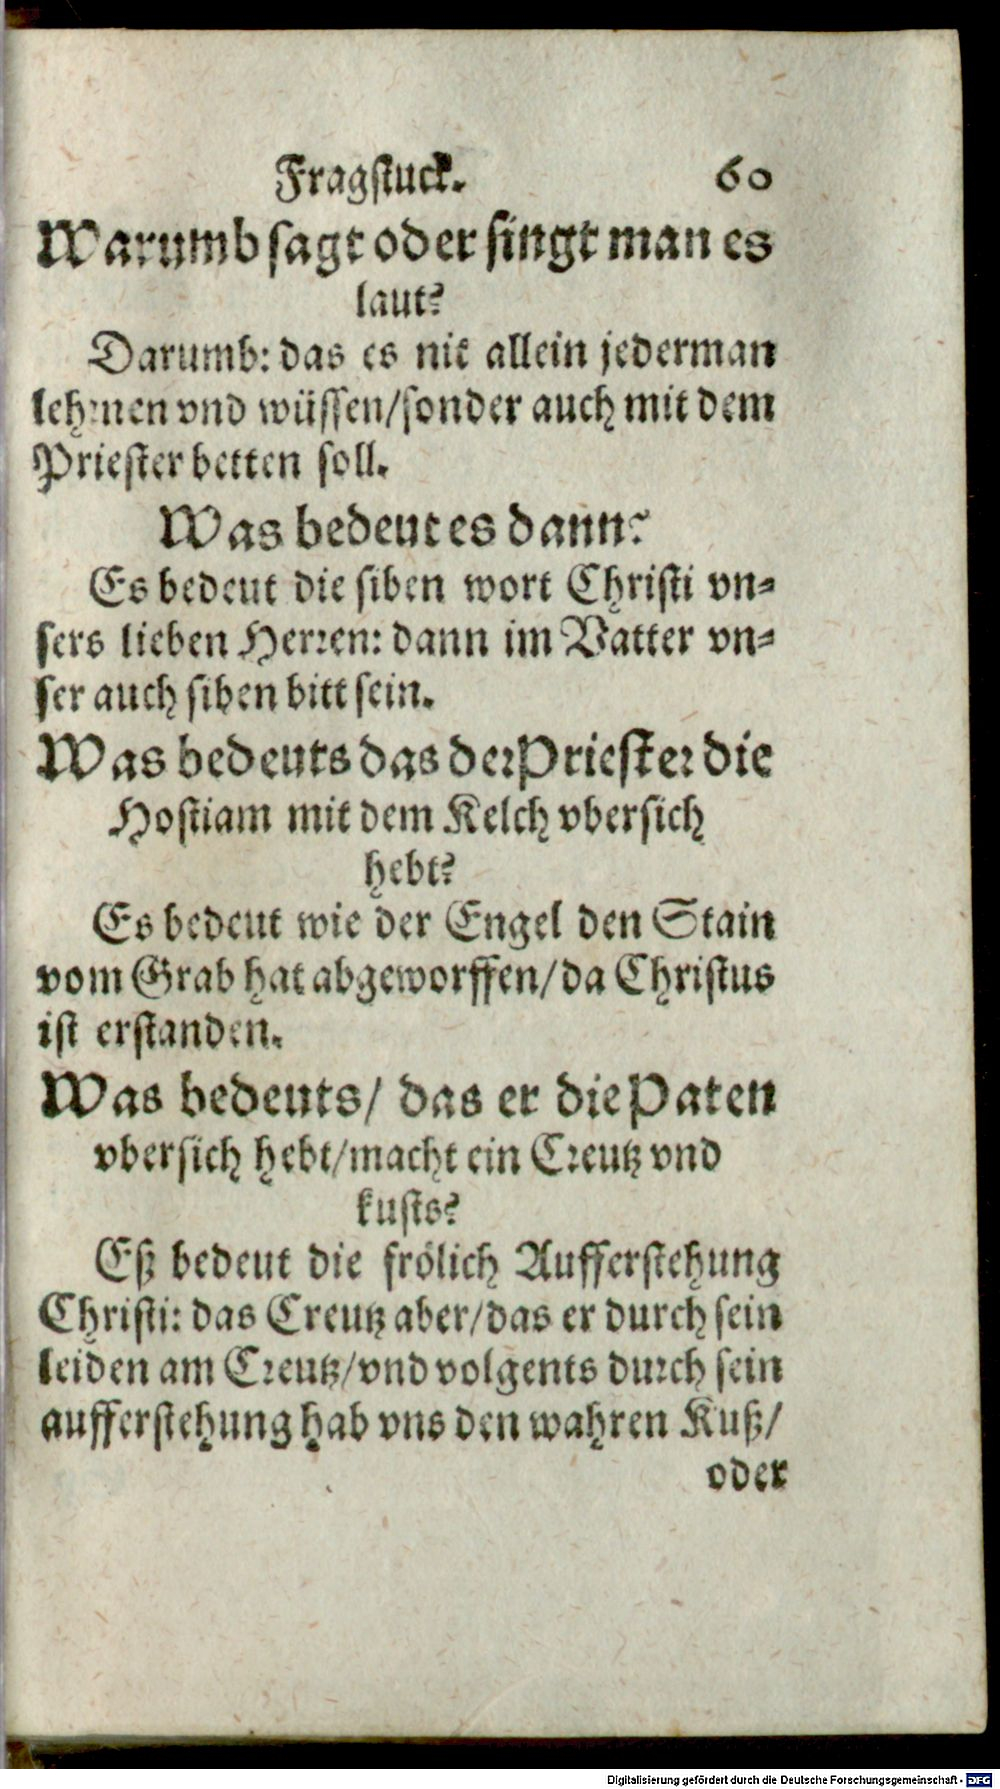 Fragstuck. 60
Warumb sagt oder singt man es
laut?
Darumb: das es nit allein jederman
lehrnen vnd wüssen/sonder auch mit dem
Priester betten soll.
Was bedeut es dann?
Es bedeut die siben wort Christi vn⸗
sers lieben Herren: dann im Vatter vn⸗
ser auch siben bitt sein.
Was bedeuts das der Priester die
Hostiam mit dem Kelch vbersich
hebt?
Es bedeut wie der Engel den Stain
vom Grab hat abgeworffen/da Christus
ist erstanden.
Was bedeuts/ das er die Paten
vbersich hebt/macht ein Creutz vnd
kusts?
Eß bedeut die frölich Aufferstehung
Christi: das Creutz aber/das er durch sein
leiden am Creutz/vnd volgents durch sein
aufferstehung hab vns den wahren Kuß/
oder
Digitalisierung gefördert durch die Deutsche Forschungsgemeinschaft - DFG